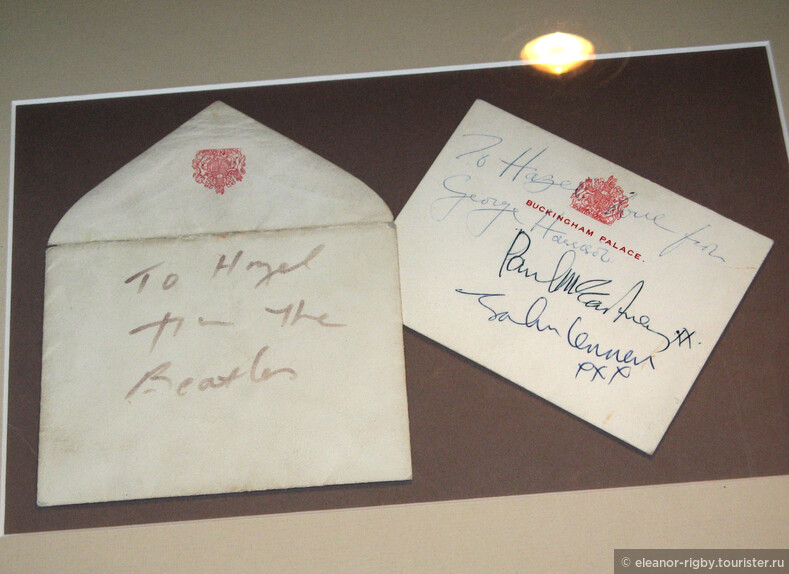 To Hazel
from The
Beatles
To Hazel love from
George Harrison
BUCKINGHAM PALACE.
Paul McCartney xx.
John Lennon
xxx
© eleanor-rigby.tourister.ru